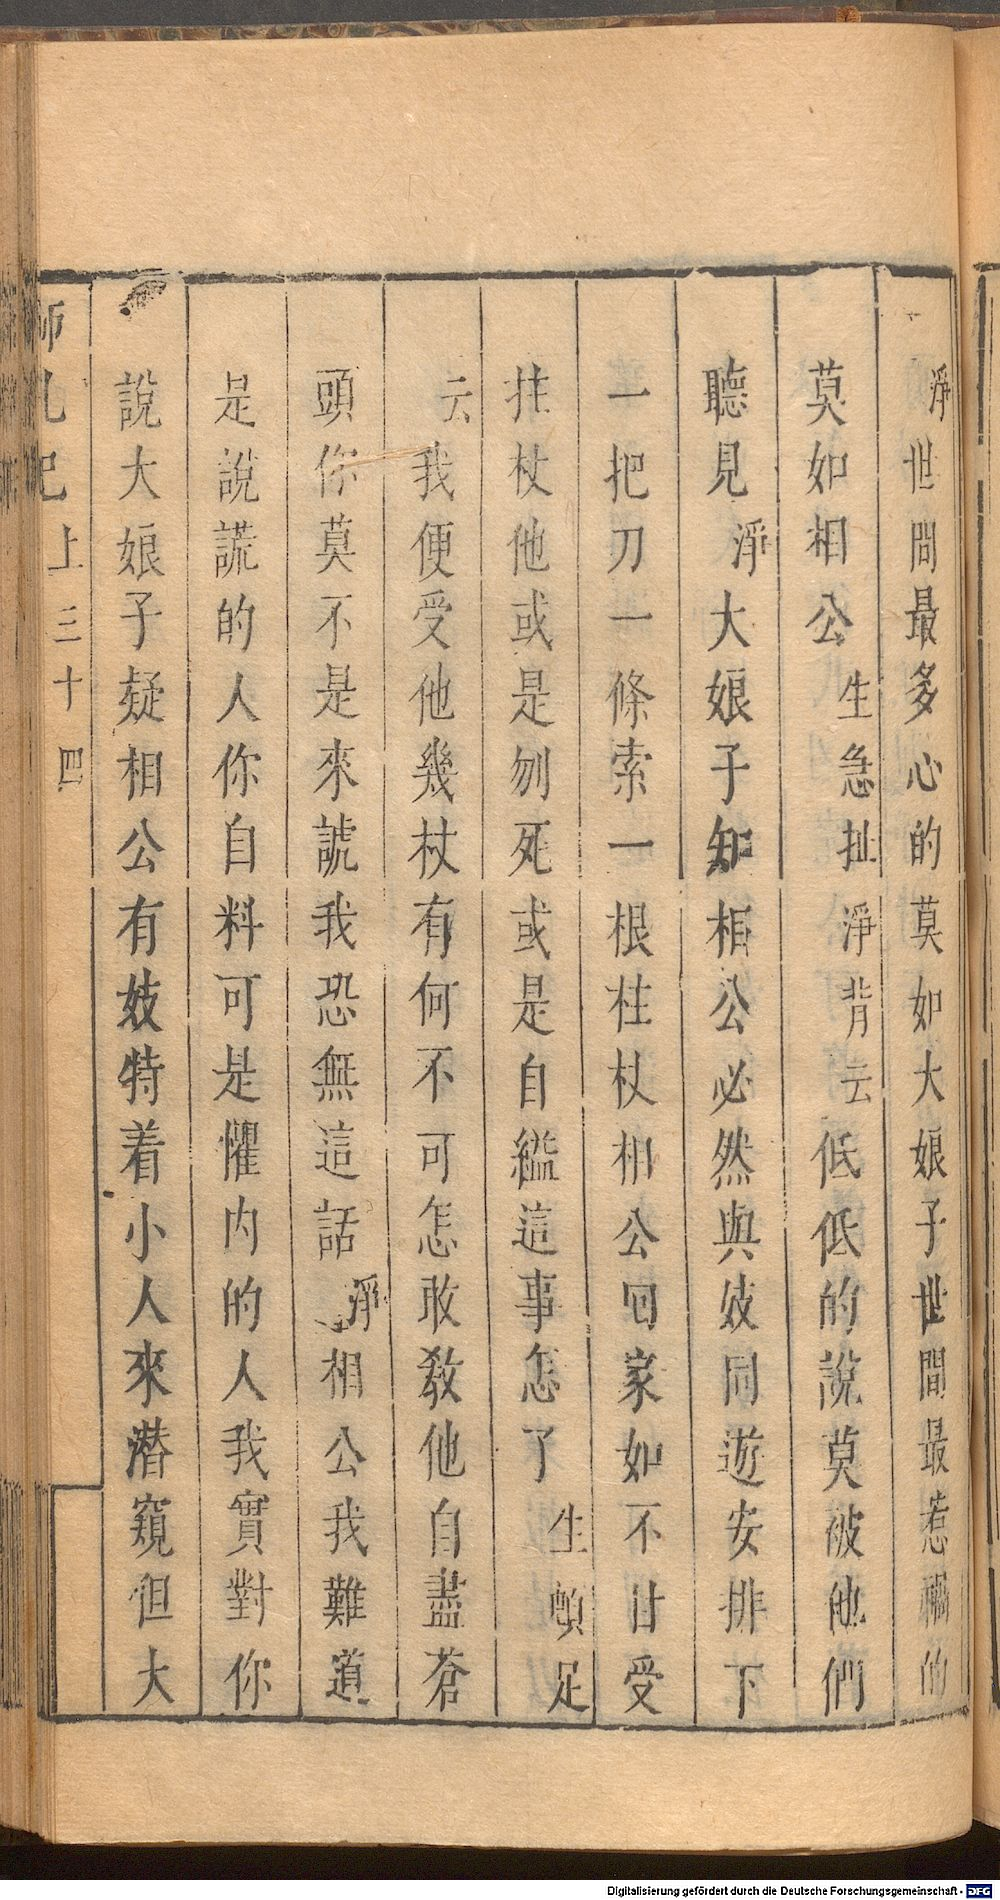 淨世間最多心的莫如大娘子世間最惹禍的
莫如相公生急扯淨背云低低的說莫被他們
聽見淨大娘子知相公必然與妓同遊安排下
一把刀一條索一根柱杖相公回家如不甘受
拄杖他或是刎死或是自縊這事怎了生頓足
云我便受他幾杖有何不可怎敢教他自盡蒼
頭你莫不是來諕我恐無這話淨相公我難道
是說謊的人你自料可是懼內的人我實對你
說大娘子疑相公有妓特着小人來潛窺但大
師吼記 上 三十四
Digitalisierung gefördert durch die Deutsche Forschungsgemeinschaft - DFG